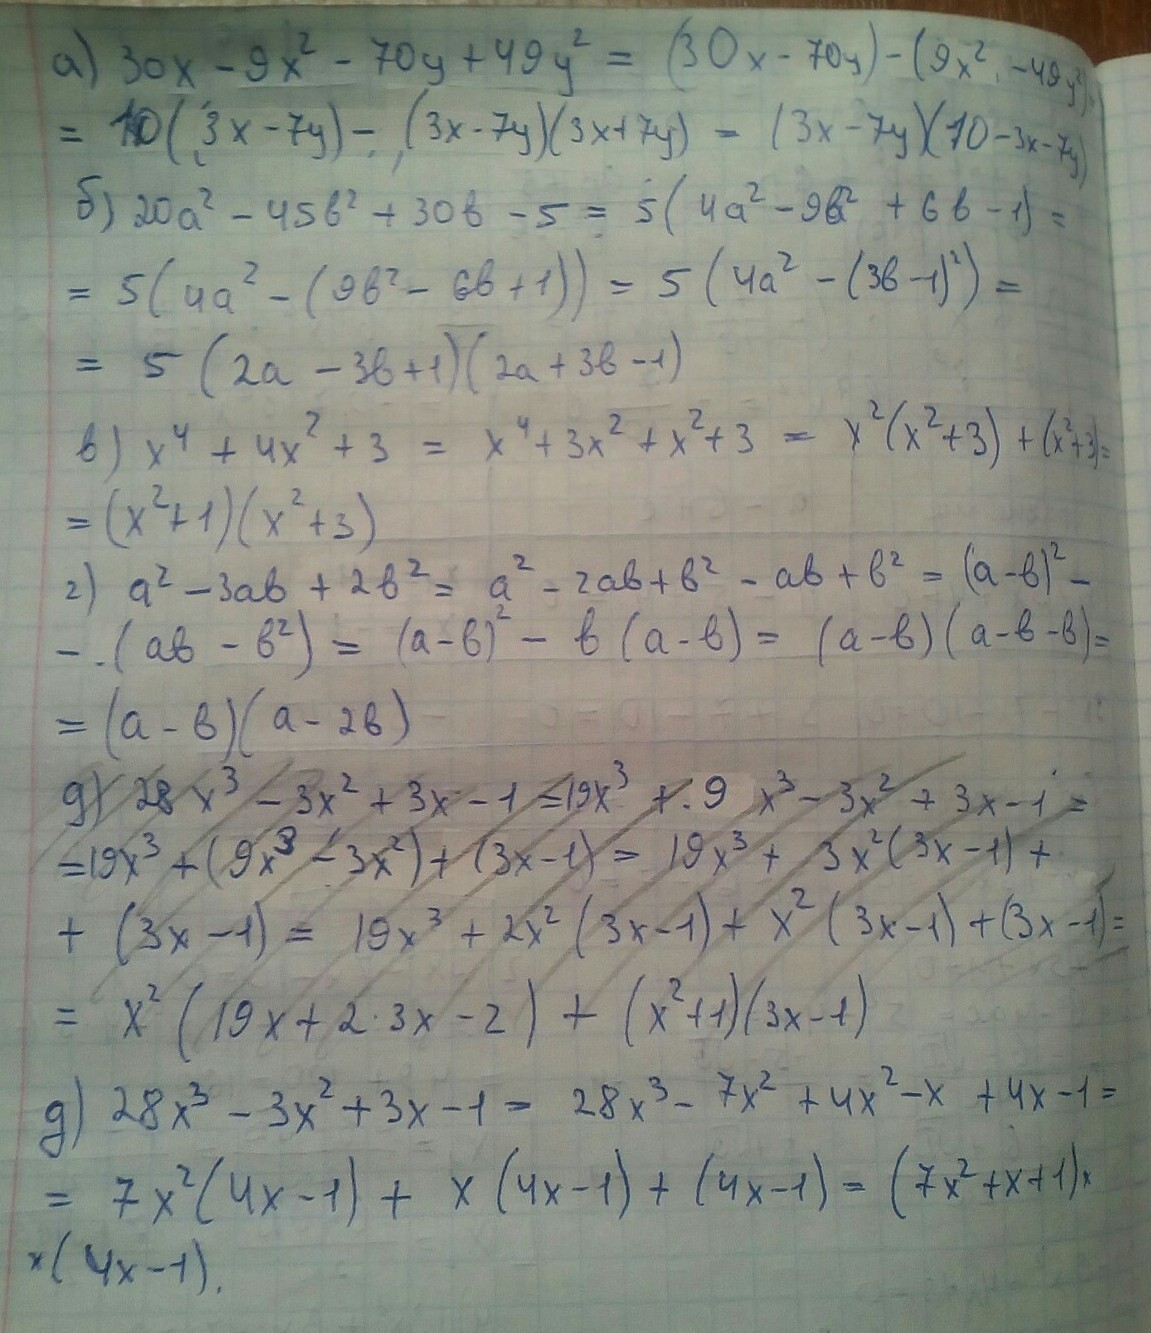 а) 30x - 9x² - 70y + 49y² = (30x - 70y) - (9x² - 49y²) =
= 10(3x - 7y) - (3x - 7y)(3x + 7y) = (3x - 7y)(10 - 3x - 7y)
б) 20a² - 45b² + 30b - 5 = 5(4a² - 9b² + 6b - 1) =
= 5(4a² - (9b² - 6b + 1)) = 5(4a² - (3b - 1)²) =
= 5(2a - 3b + 1)(2a + 3b - 1)
в) x⁴ + 4x² + 3 = x⁴ + 3x² + x² + 3 = x²(x² + 3) + (x² + 3) =
= (x² + 1)(x² + 3)
г) a² - 3ab + 2b² = a² - 2ab + b² - ab + b² = (a - b)² -
- (ab - b²) = (a - b)² - b(a - b) = (a - b)(a - b - b) =
= (a - b)(a - 2b)
д) 28x³ - 3x² + 3x - 1 = 19x³ + 9x³ - 3x² + 3x - 1 =
= 19x³ + (9x³ - 3x²) + (3x - 1) = 19x³ + 3x²(3x - 1) +
+ (3x - 1) = 19x³ + 2x²(3x - 1) + x²(3x - 1) + (3x - 1) =
= x²(19x + 2·3x - 2) + (x² + 1)(3x - 1)
д) 28x³ - 3x² + 3x - 1 = 28x³ - 7x² + 4x² - x + 4x - 1 =
= 7x²(4x - 1) + x(4x - 1) + (4x - 1) = (7x² + x + 1)×
×(4x - 1).